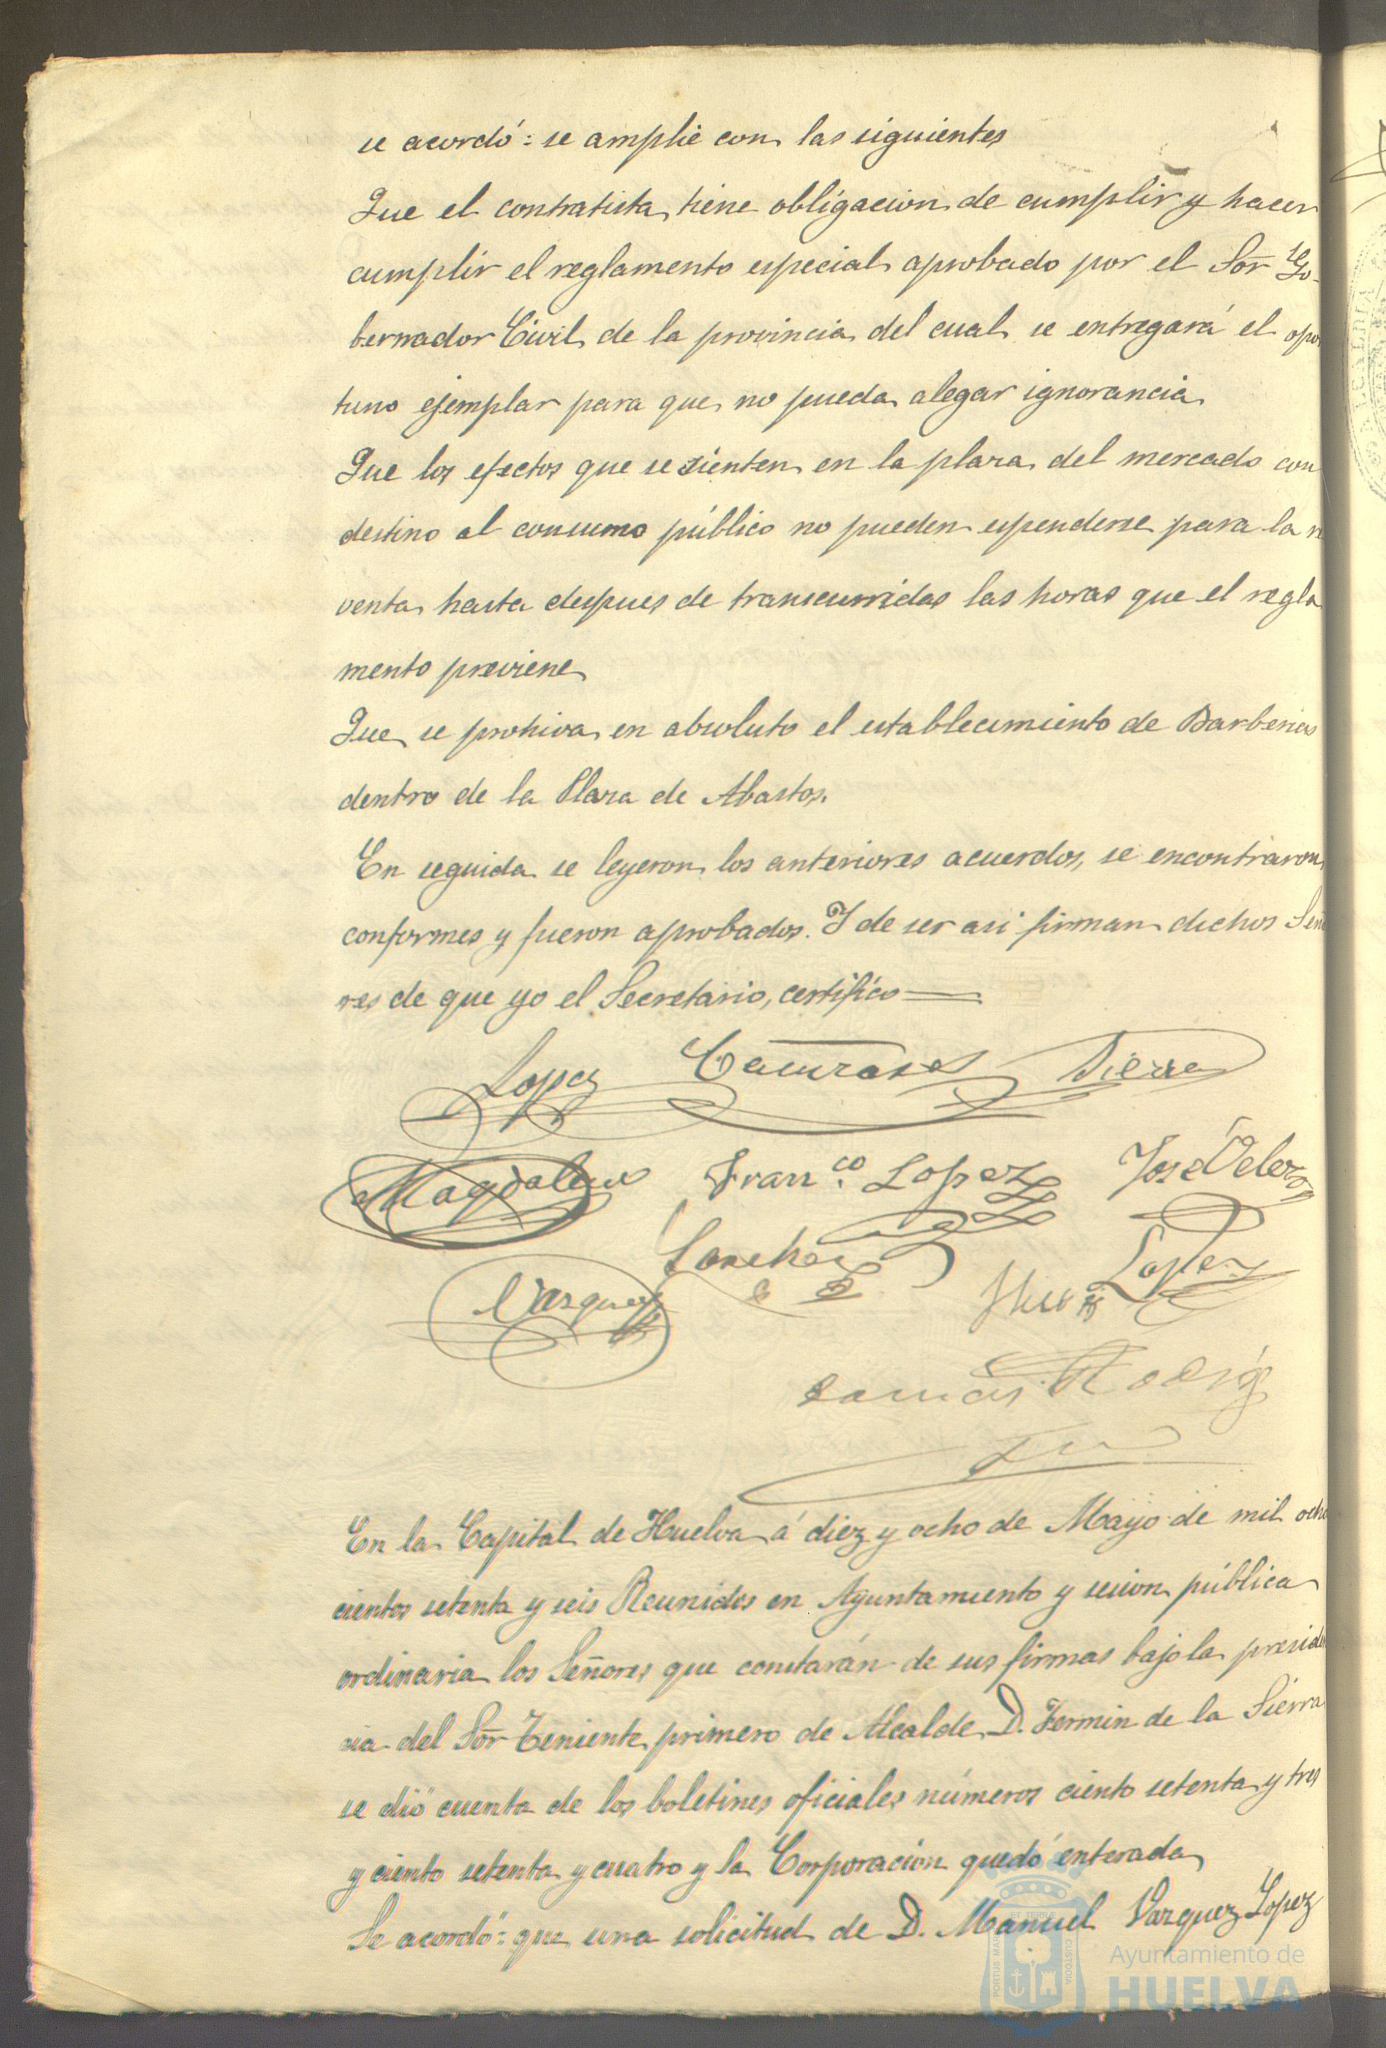 se acordó: se amplie con las siguientes
Que el contratista tiene obligacion de cumplir y hacer
cumplir el reglamento especial aprobado por el Sor Go-
bernador Civil de la provincia del cual se entregará el opor
tuno ejemplar para que no pueda alegar ignorancia
Que los efectos que se sienten en la plaza del mercado con
destino al consumo público no pueden espenderse para la re
venta hasta despues de transcurridas las horas que el regla
mento previene
Que se prohiva en absoluto el establecimiento de Barberias
dentro de la Plaza de Abastos.
En seguida se leyeron los anteriores acuerdos, se encontraron
conformes y fueron aprobados. Y de ser asi firman dichos Seño
res de que yo el Secretario, certifico
Lopez Sierra
Magdalena Franco. Lopez José Velez
Sanchez Lopez
Vazquez
Rodrig
En la Capital de Huelva á diez y ocho de Mayo de mil ocho
cientos setenta y seis Reunidos en Ayuntamiento y sesion pública
ordinaria los Señores que constarán de sus firmas bajo la presiden
cia del Sor Teniente primero de Alcalde D. Fermin de la Sierra
se dió cuenta de los boletines oficiales números ciento setenta y tres
y ciento setenta y cuatro y la Corporacion quedó enterada
Se acordó: que una solicitud de D. Manuel Vazquez Lopez
Ayuntamiento de
HUELVA